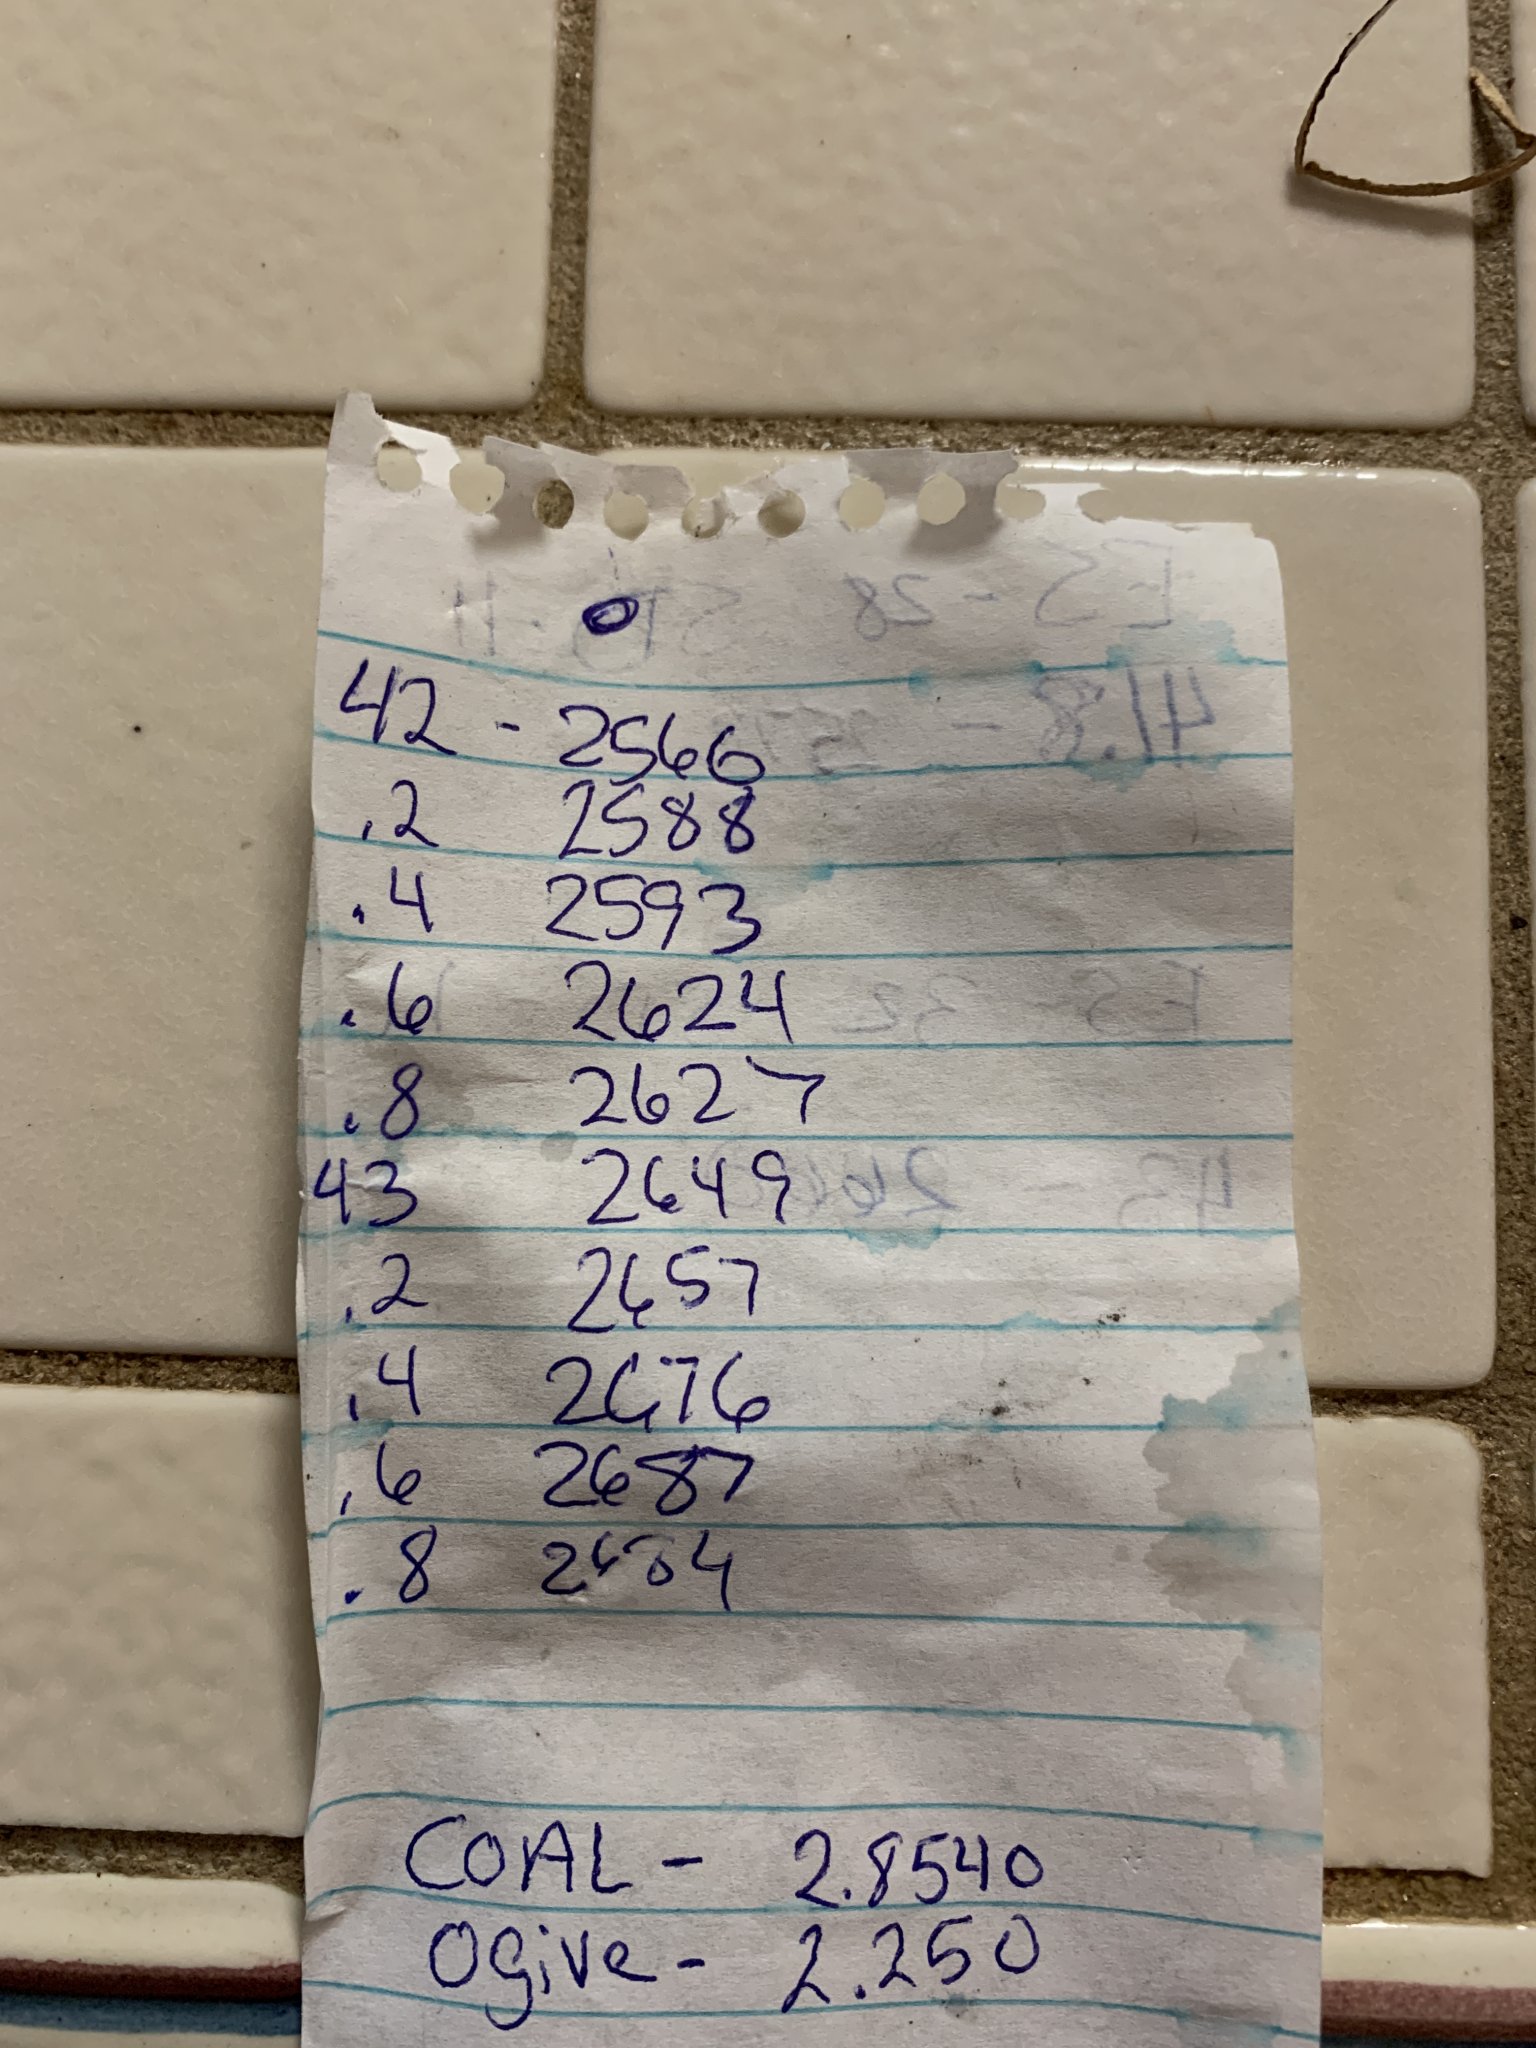 42 - 2566
.2 2588
.4 2593
.6 2624
.8 2627
43 2649
.2 2657
.4 2676
.6 2687
.8
COAL - 2.8540
Ogive - 2.250